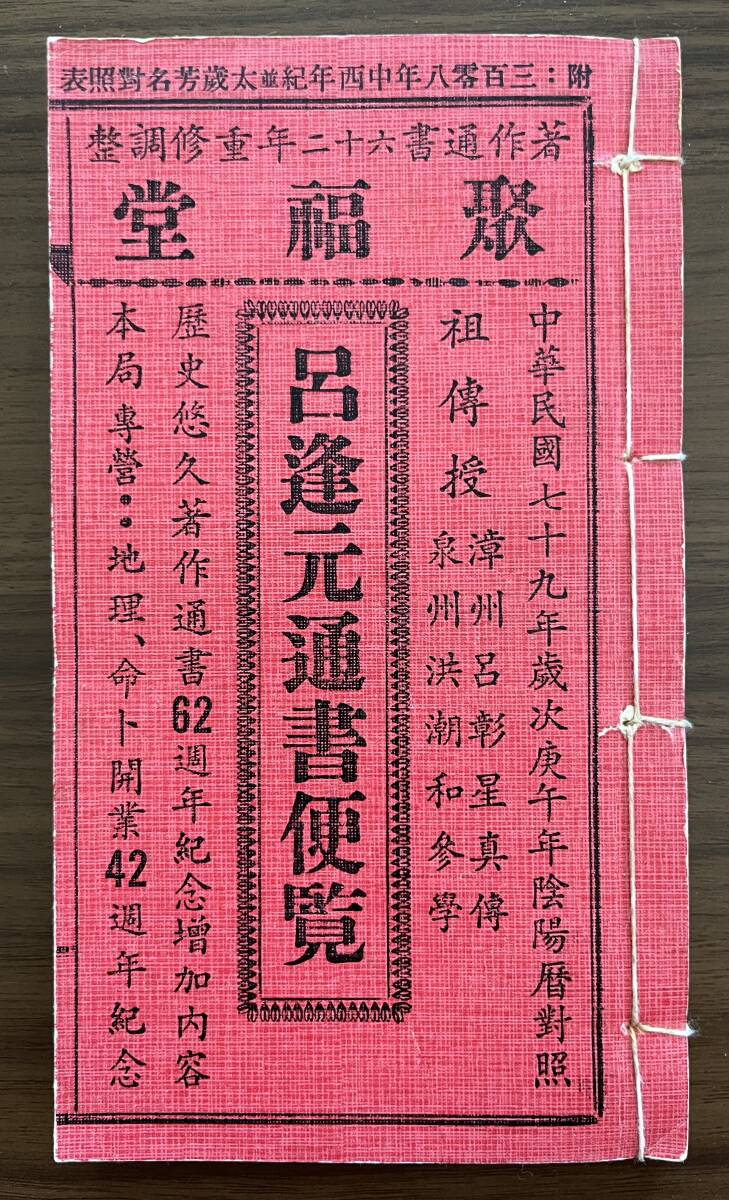 附：三百零八年中西年紀並太歲芳名對照表
著作通書六十二年重修調整
聚福堂
中華民國七十九年歲次庚午年陰陽曆對照
祖傳授
漳州呂彰星真傳
泉州洪潮和參學
呂逢元通書便覧
歷史悠久著作通書62週年紀念增加內容
本局專營：地理、命卜開業42週年紀念